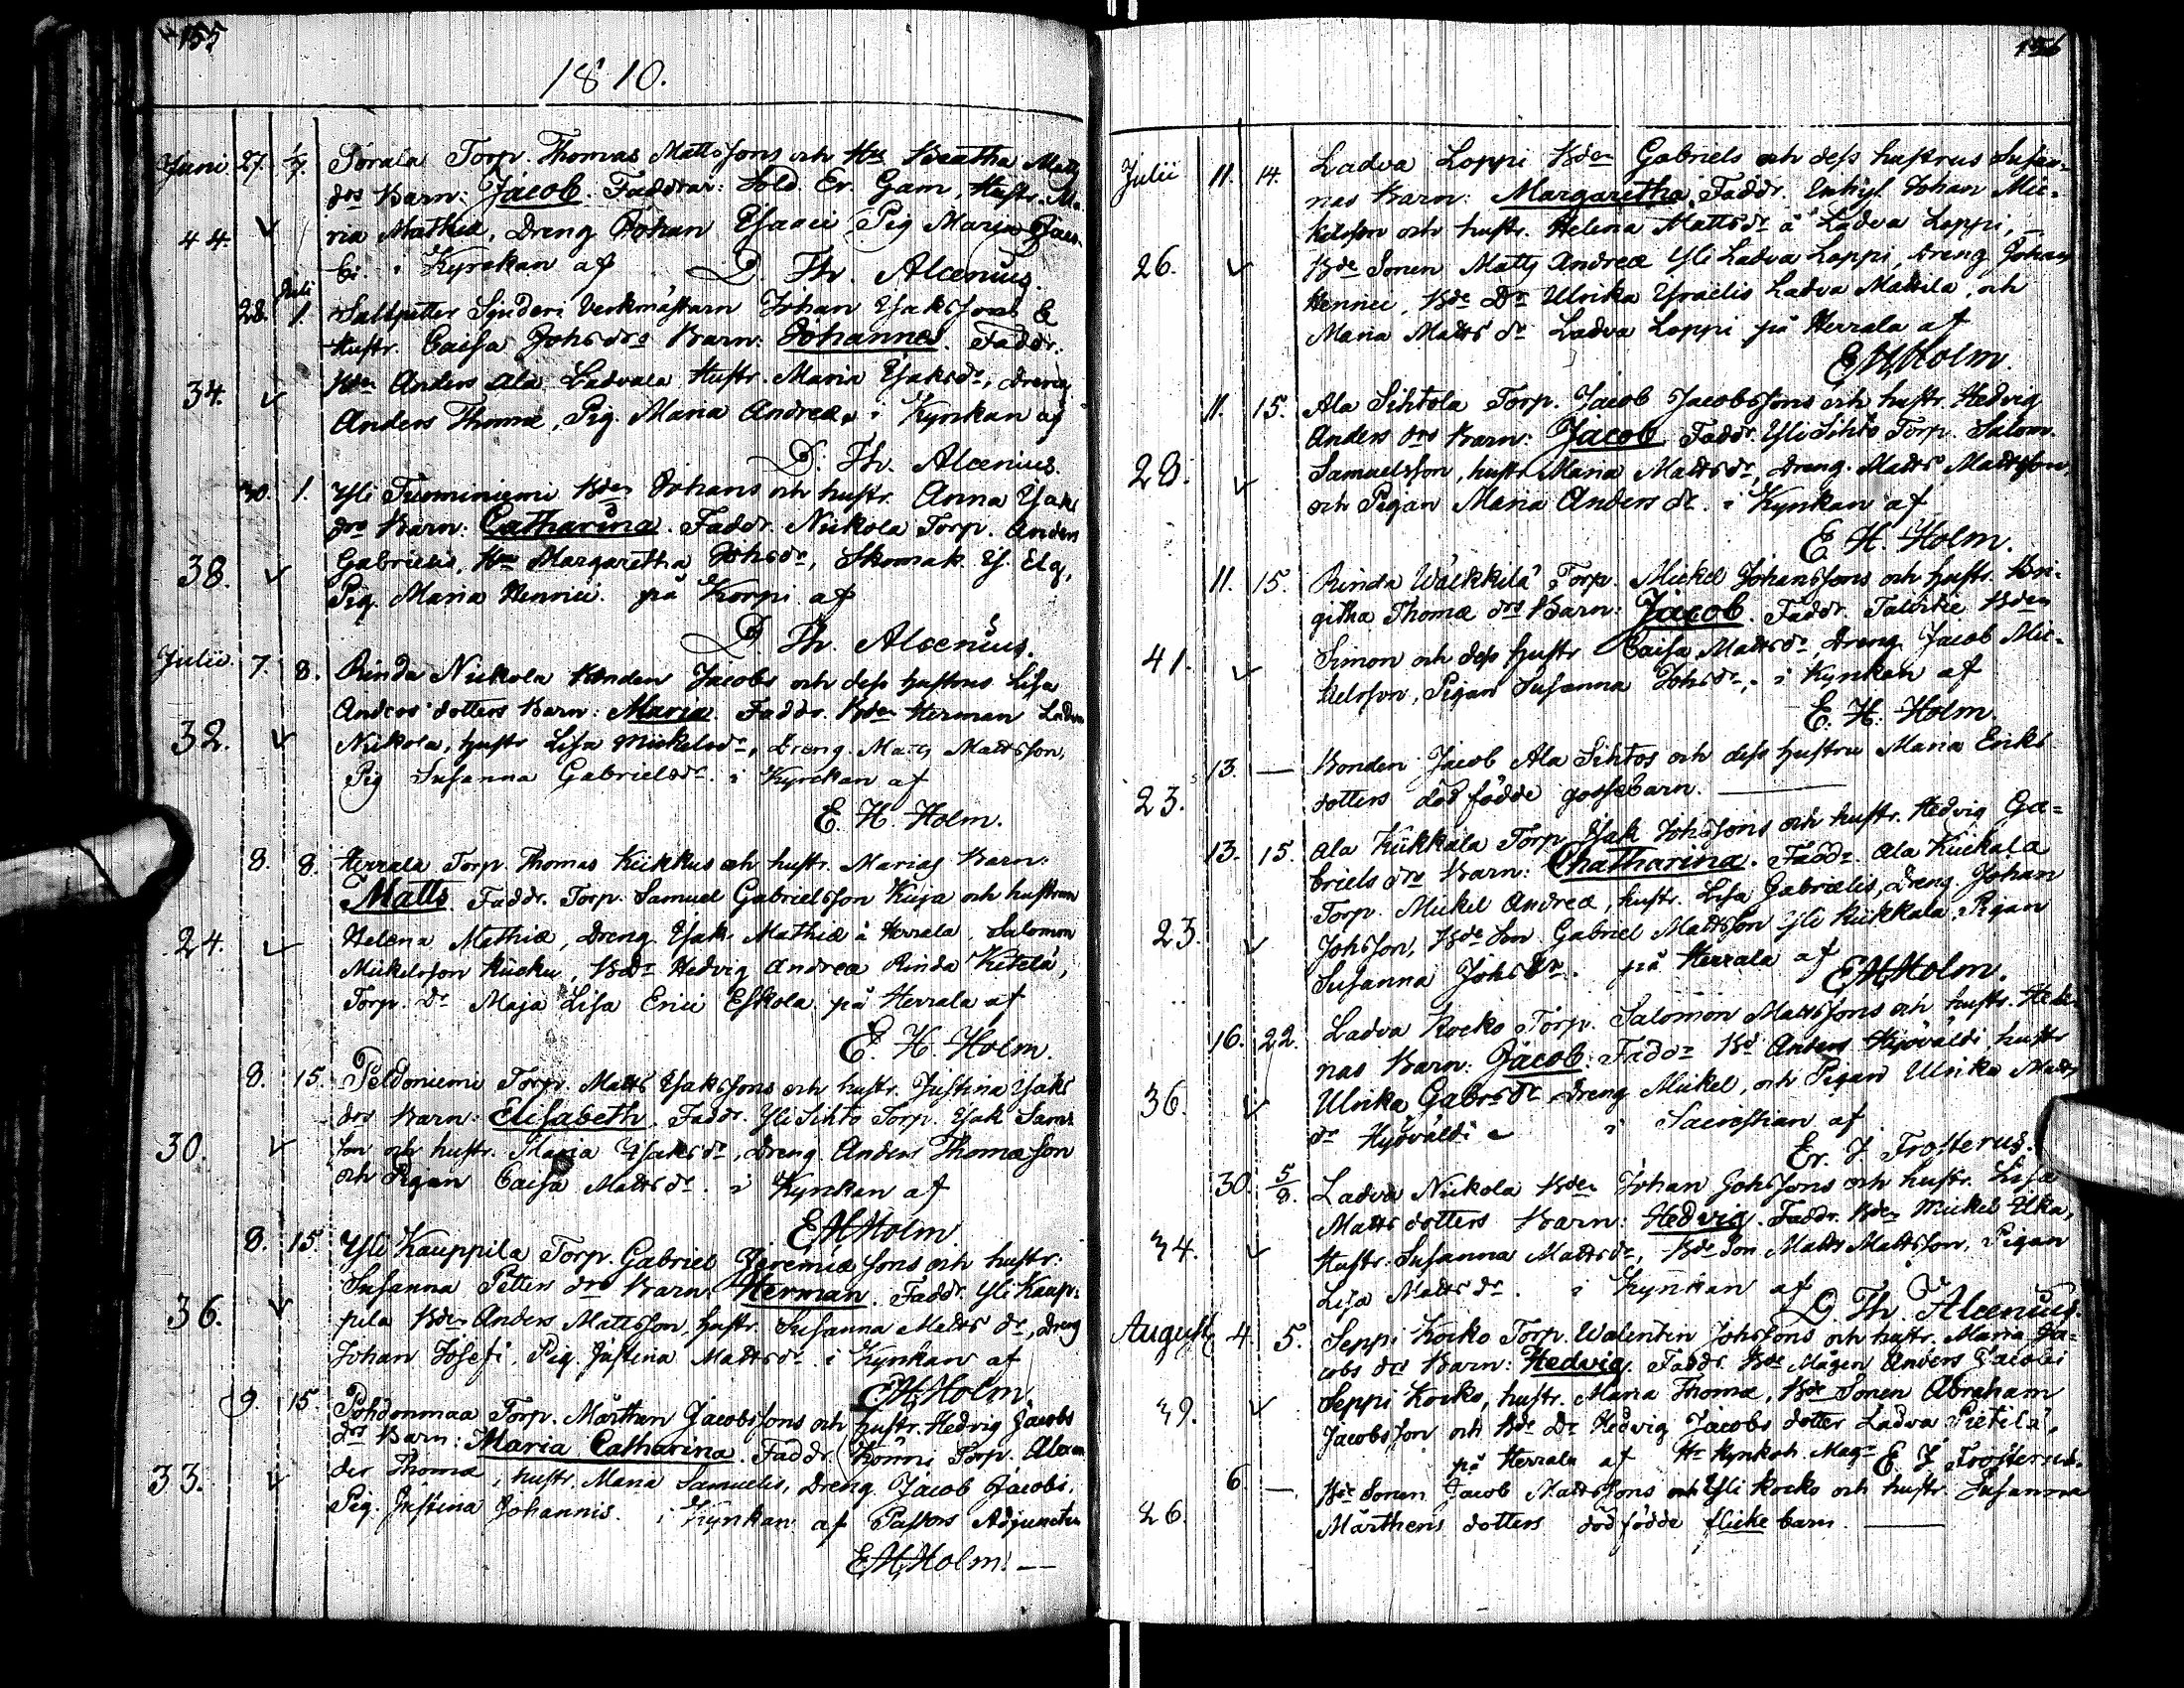 155
1810.
Juni 27. 1/7. Torala Torp. Thomas Mattssons och Hu Beatha Matts
drs Barn: Jacob. Faddrar: Sold. Er. Gam, Hustr. Ma-
44. ria Mathiæ, Dreng Johan Esaaci, Pig Maria
i Kyrckan af D. Th. Alcenius.
Juli
28. 1. Saltpetter Sjuderi Verkmästarn Johan Isakssons &
Hustr. Caisa Johsdrs Barn: Johannes. Faddr.
34. Bdn Anders Ala Ladvala Hustr. Maria Isaksdr, dreng
Anders Thomæ, Pig. Maria Andreæ, i Kyrkan af
D. Th. Alcenius.
30. 1. Yli Tuominiemi Bdn Johans och hustr. Anna Isaks
drs Barn: Catharina. Faddr. Nickola Torp. Anders
38. Gabrielis, Hu Margaretha Johsdr, Skomak. Elg,
Pig. Maria Henrici. på Korpi af
D. Th. Alcenius.
Julii. 7. 8. Rinda Nickola Bonden Jacobs och dess hustrus Lisa
Anders dotters Barn: Maria. Faddr. Bden Herman Ladva
32. Nickola, hustr Lisa Mickelsdr, Dreng. Matts Mattsson,
Pig Susanna Gabrielsdr. i Kyrckan af
E. H. Holm.
8. 8. Herrala Torp. Thomas Kuckkus och hustr. Marias Barn:
Matts. Faddr. Torp. Samuel Gabrielsson Kuja och hustrun
24. Helena Mathiæ, Dreng Isak Mathiæ å Herrala, Salomon
Mickelsson Kucku, Bdr Hedvig Andreæ Rinda Ketelä,
Torp. Dr Maja Lisa Erici Eskola på Herrala af
E. H. Holm.
8. 15. Peldoniemi Torp. Matts Isakssons och hustr. Justina Isaks
drs Barn: Elisabeth. Faddr. Yli Sihto Torp. Isak Sams
30. son och hustr. Maria Isaksdr, Dreng. Anders Thomæson
och Pigan Caisa Mattsdr. i Kyrkan af
E H Holm.
8. 15 Yli Kauppila Torp. Gabriel Jeremiæ sons och hustr:
Susanna Petters drs Barn: Herman. Faddr. Yli Kaup-
36. pila Bdn Anders Mattsson, hustr. Susanna Matts dr, dreng
Johan Josefi, Pig. Justina Mattsdr. i Kyrkan af
E H Holm
9. 15. Pohdonmaa Torp. Mårthen Jacobssons och hustr. Hedvig Jacobs
drs Barn: Maria Catharina. Faddr. Könni Torp. Alexan
33. der Thomæ, hustr. Maria Samuelis, Dreng. Jacob Jacobi,
Pig. Justina Johannis. i Kyrkan af Pastors Adjuncten
E H Holm. —
156
Julii 11. 14. Ladva Loppi Bden Gabriels och dess hustrus Susan-
nas Barn: Margaretha. Faddr. Johan Mic-
kelsson och hustr. Helena Mattsdr å Ladva Loppi, —
26. Bde Sonen Matts Andreæ Yli Ladva Loppi, Dreng Johan
Henrici, Bde Dr Ulrika Israelis Ladva Mattila, och
Maria Matts dr Ladva Loppi på Herrala af
E H Holm.
11. 15. Ala Sihtola Torp. Jacob Jacobssons och hustr. Hedvig
Anders drs Barn: Jacob. Faddr. Yli Sihto Torp. Salom.
28. Samuelsson, hustr Maria Mattsdr, dreng. Matts Mattsson,
och Pigan Maria Anders dr. i Kyrkan af
E. H. Holm.
11. 15. Rinda Wälkkilä Torp. Mickel Johanssons och hustr. Bri-
githa Thomæ drs Barn: Jacob. Faddr. Talvitie Bden
41. Simon och dess hustr Caisa Mattsdr, Dreng. Jacob Mic-
kelsson, Pigan Susanna Johsdr, i Kyrkan af
E. H. Holm.
13. — Bonden Jacob Ala Sihtos och dess hustru Maria Eriks
23. dotters död födde gossebarn. —
13. 15. Ala Kuckkala Torp Isak Johssons och hustr. Hedvig Ga-
briels drs Barn: Chatharina. Faddr. Ala Kuckala
Torp. Mickel Andreæ, hustr. Lisa Gabrielis, dreng. Johan
23. Johsson, Bde Son Gabriel Mattsson Yli Kuckkala, Pigan
Susanna Johs Dr. på Herrala af E H Holm.
16. 22. Ladva Rocko Torp. Salomon Mattssons och hustr. Hele-
nas Barn: Jacob. Faddr Bd Anders Hyöväldi hustr
36. Ulrika Gabrs dr Dreng Mickel, och Pigan Ulrika Matts
dr Hyöväldi i Sacrestian af
Er. J. Frosterus.
30. 5/8. Ladva Nickola Bden Johan Johssons och hustr. Lisa
Matts dotters Barn: Hedvig. Faddr. Bden Mickel Ulka,
34. Hustr. Susanna Mattsdr, Bde Son Matts Mattsson, Pigan
Lisa Matts dr. i Kyrkan af
D. Th. Alcenius.
Augusti 4. 5. Seppi Kocko Torp. Walentin Johssons och hustr. Maria Ja-
cobs drs Barn: Hedvig. Faddr. Bde Mågen Anders Jacobi
39. Seppi Kocko, hustr. Maria Thomæ, Bde Sonen Abraham
Jacobsson och Bde Dr Hedvig Jacobs dotter Ladva Pietilä,
på Herrala af Hr Kyrkoh Magr E J Frosterus.
6. —. Bde Sonen Jacob Mattssons och Yli Kocko och hustr. Susanna
26. Mårthens dotters död födde flicke barn. —